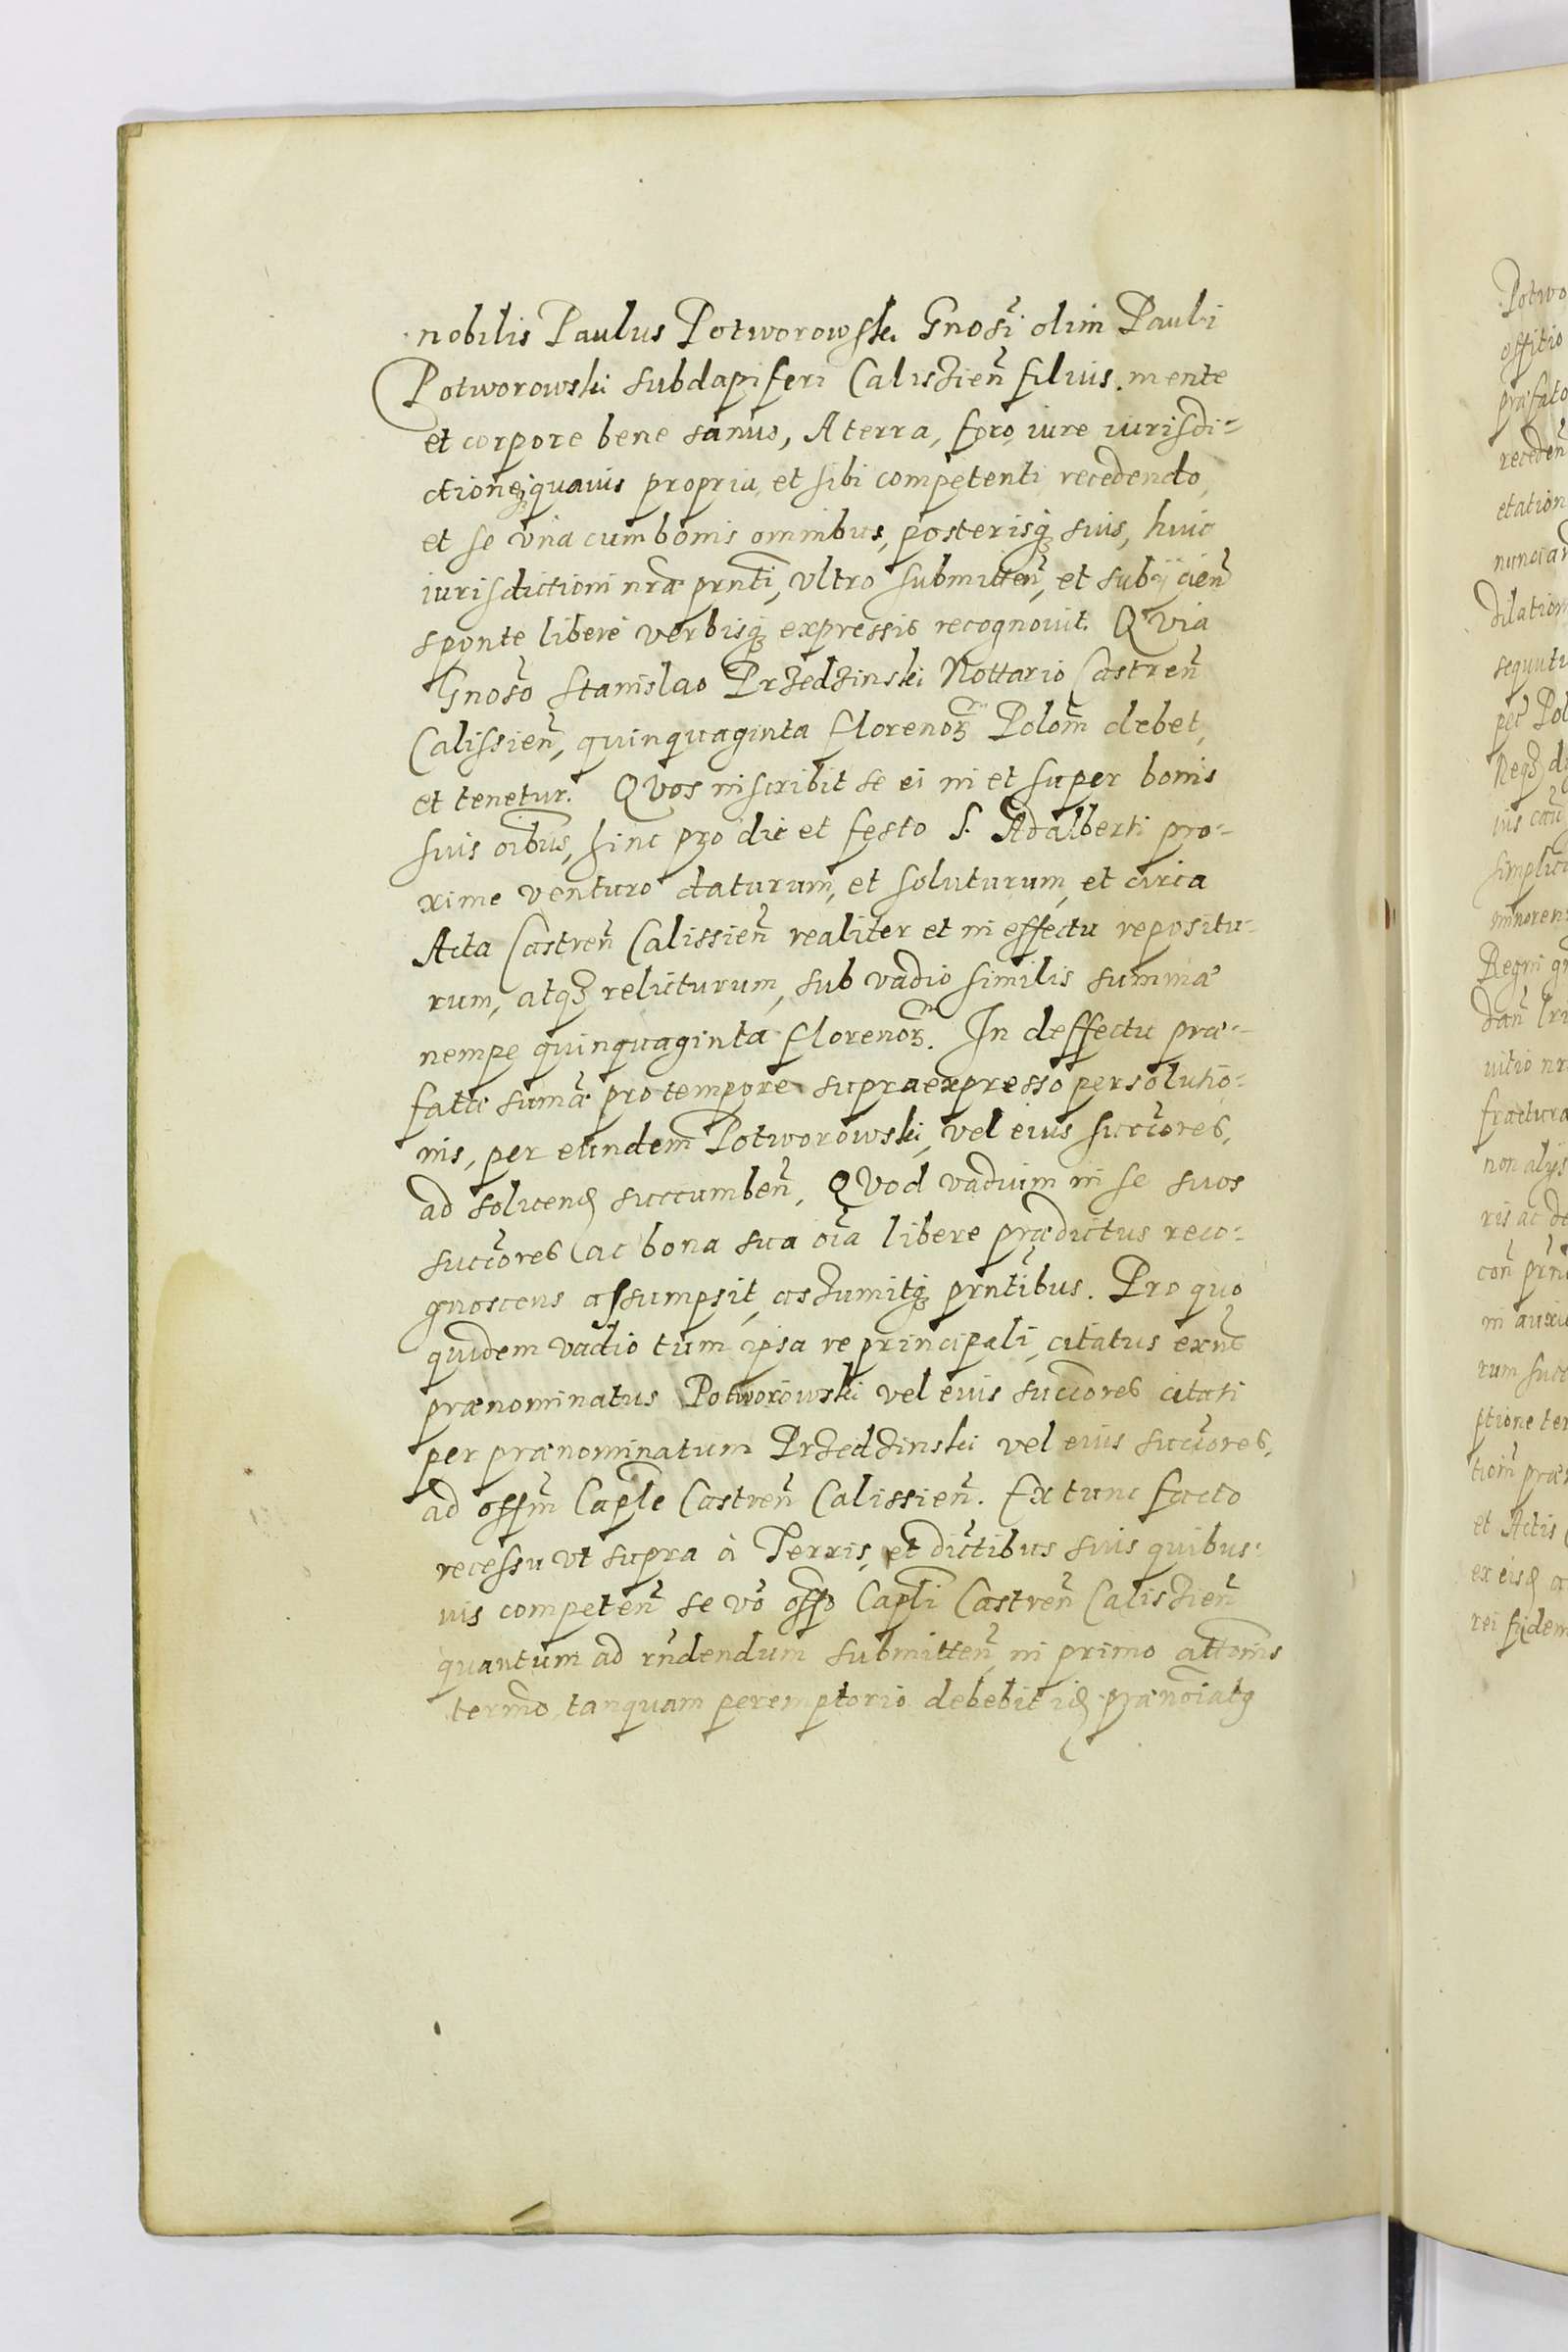 nobilis Paulus Potworowski Gnosi olim Pauli
Potworowski subdapiferi Caliszien̄ filius. mente
et corpore bene sanus, A terra, foro, iure iurisdi-
ctioneq; quauis propria, et sibi competenti recedendo,
et se vna cum bonis omnibus, posterisq; suis, huic
iurisdictioni nr̄æ prn̄ti, vltro submitten̄, et subijcien̄
sponte liberè verbisq; expressis recognouit. Quia
Gnoso Stanislao Przedzinski Nottario Castren̄
Calissien̄, quinquaginta florenoꝝ Polom̄ debet,
et tenetur. Quos inscribit se ei in et super bonis
suis oībus, hinc pro die et festo S. Adalberti pro-
xime venturo daturum, et soluturum, et circa
Acta Castren̄ Calissien̄ realiter et in effectu repositu-
rum, atq; relicturum, sub vadio similis summæ
nempe quinquaginta florenoꝝ. In deffectu præ-
fatæ sum̄æ pro tempore supraexpresso persolutio-
nis, per eundem Potworowski, vel eius succores,
ad soluend succumben̄, Quod vadium in se suos
succores ac bona sua oīa libere prædictus reco-
gnoscens assumpsit, aszumitq; prn̄tibus. Pro quo
quidem vadio tum ipsa re principali, citatus extnc
prænominatus Potworowski vel euis succores citati
per prænominatum Przedzinski vel eius succores,
ad offm̄ Caple Castren̄ Calissien̄. Ex tunc facto
recessu vt supra à Terris, et dictibus suis quibus-
uis competen̄ se vo offo Capli Castren̄ Caliszien̄
quantum ad rn̄dendum submitten̄, in primo attonis
termo, tanquam peremptorio debebit id prænoīatg